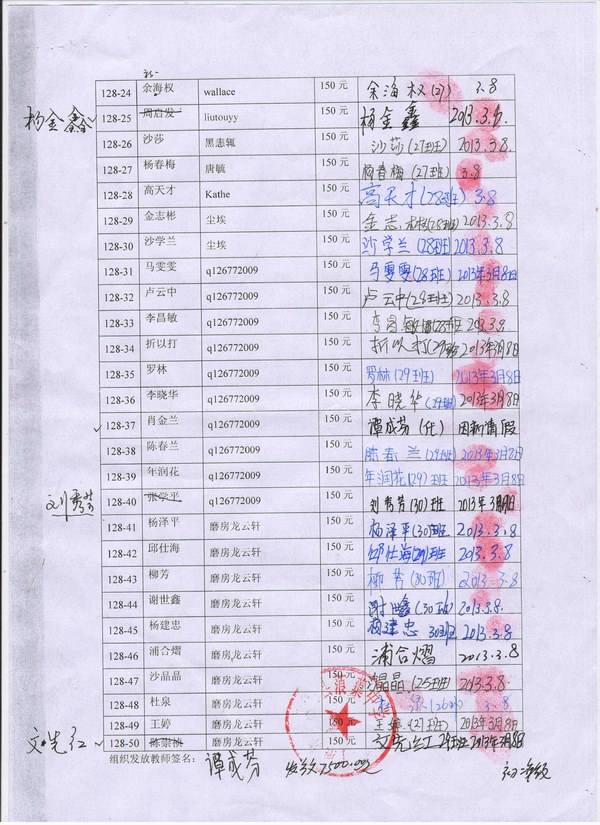 128-24 余海权 wallace 150 元 余海权(27) 3.8
杨金鑫 128-25 周启发 liutouyy 150 元 杨金鑫 2013.3.8.
128-26 沙莎 黑志辄 150 元 沙莎(27班) 2013.3.8.
128-27 杨春梅 唐毓 150 元 杨春梅(27班) 3.8
128-28 高天才 Kathe 150 元 高天才(28班) 3.8
128-29 金志彬 尘埃 150 元 金志彬(28班) 2013.3.8
128-30 沙学兰 尘埃 150 元 沙学兰(28班) 2013.3.8
128-31 马雯雯 q126772009 150 元 马雯雯(28班) 2013年3月8日
128-32 卢云中 q126772009 150 元 卢云中(29班) 2013.3.8
128-33 李昌敏 q126772009 150 元 李昌敏
128-34 折以打 q126772009 150 元 折以打(29班) 2013年3月8日
128-35 罗林 q126772009 150 元 罗林(29班) 2013年3月8日
128-36 李晓华 q126772009 150 元 李晓华(29班) 2013年3月8日
128-37 肖金兰 q126772009 150 元 谭成芬(代) 因病请假
128-38 陈春兰 q126772009 150 元 陈春兰(29班) 2013年3月8日
128-39 年润花 q126772009 150 元 年润花(29)班 2013年3月8日
刘秀芳 128-40 张学平 q126772009 150 元 刘秀芳(30)班 2013年3月8日
128-41 杨泽平 磨房龙云轩 150 元 杨泽平(30)班 2013.3.8
128-42 邱仕海 磨房龙云轩 150 元 邱仕海 2013.3.8
128-43 柳芳 磨房龙云轩 150 元 柳芳(30班) 2013.3.8
128-44 谢世鑫 磨房龙云轩 150 元 谢世鑫(30班) 2013.3.8.
128-45 杨建忠 磨房龙云轩 150 元 杨建忠 30班 2013.3.8
128-46 浦合熠 磨房龙云轩 150 元 浦合熠 2013.3.8
128-47 沙晶晶 磨房龙云轩 150 元 沙晶晶(25班) 2013.3.8
128-48 杜泉 磨房龙云轩 150 元 杜泉 3.8
128-49 王婷 磨房龙云轩 150 元 王婷 2013年3月8日
文先红 128-50 磨房龙云轩 150 元 文先红 29班 2013年3月8日
组织发放教师签名： 谭成芬 发放7500.00元